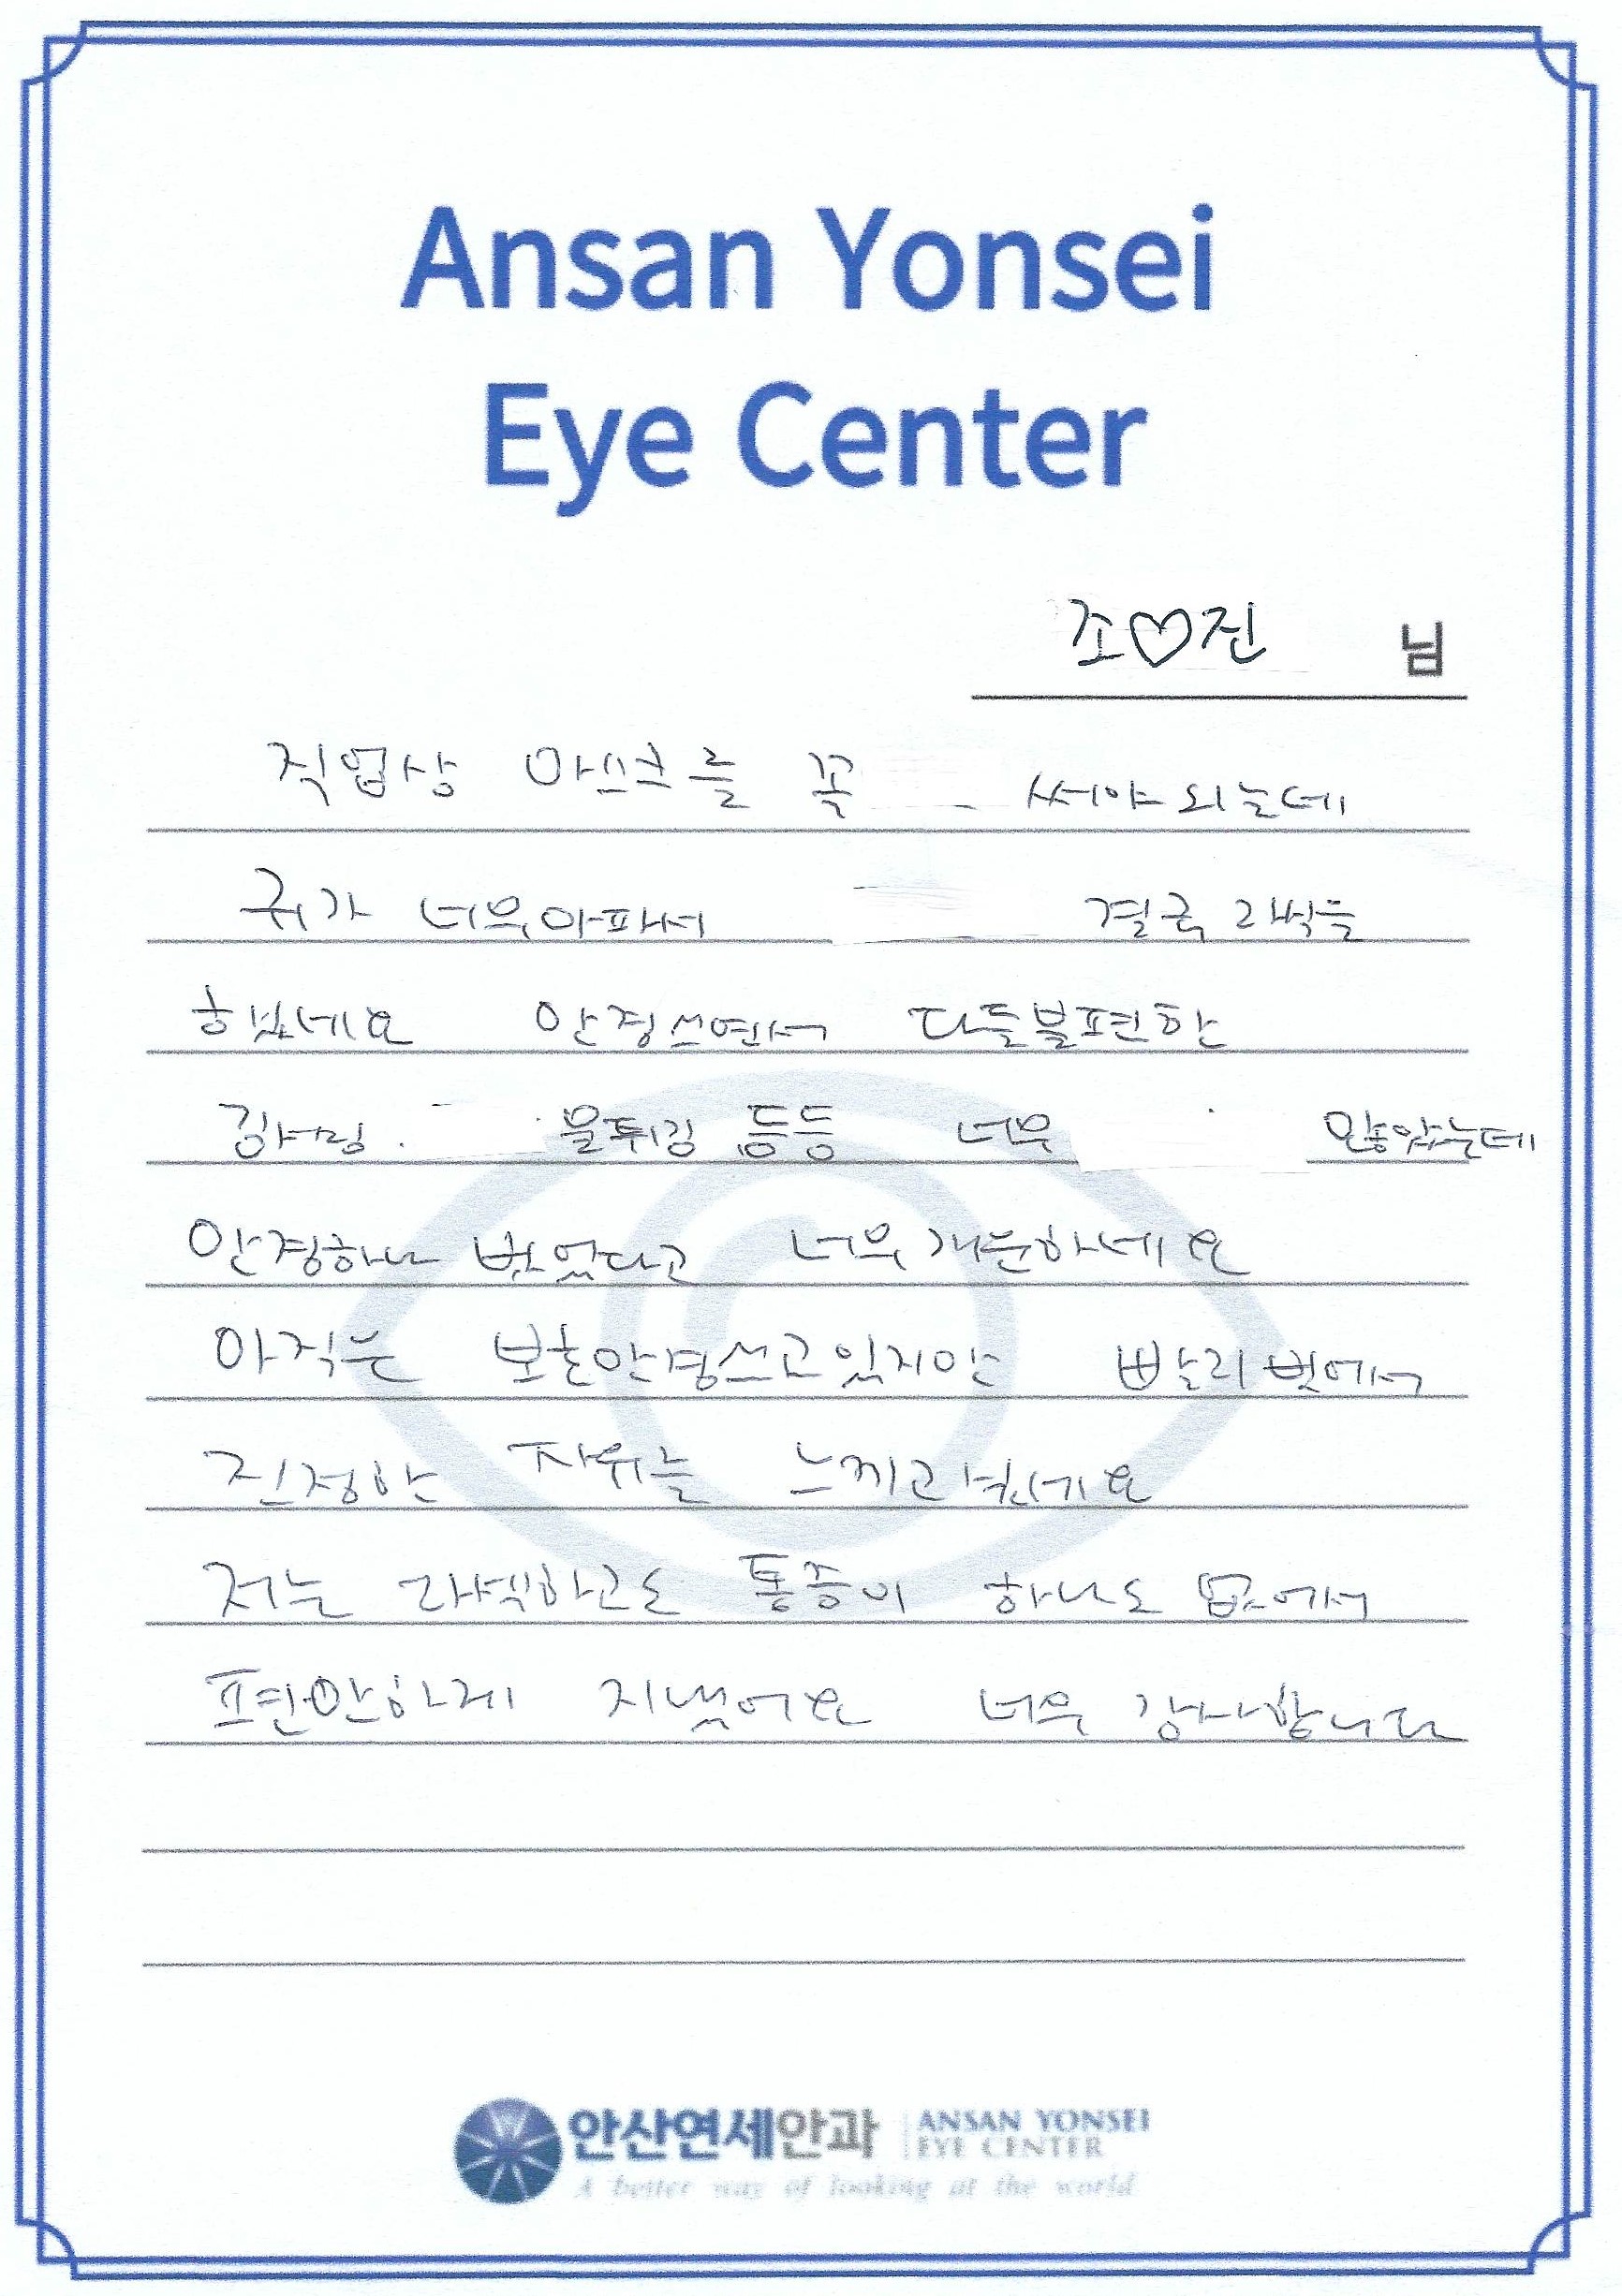 Ansan Yonsei
Eye Center
조♡진 님
직업상 마스크를 꼭 써야되는데
귀가 너무아파서 결국 라섹을
했네요 안경쓰면서 다들불편한
김서림. 물튀김 등등 너무 많았는데
안경하나 벗었다고 너무 개운하네요
아직은 보호안경쓰고있지만 빨리벗에서
진정한 자유를 느끼고싶네요
저는 라섹하고도 통증이 하나도 없에서
편안하게 지냈어요 너무 감사합니다
안산연세안과 ANSAN YONSEI
EYE CENTER
A better way of looking at the world